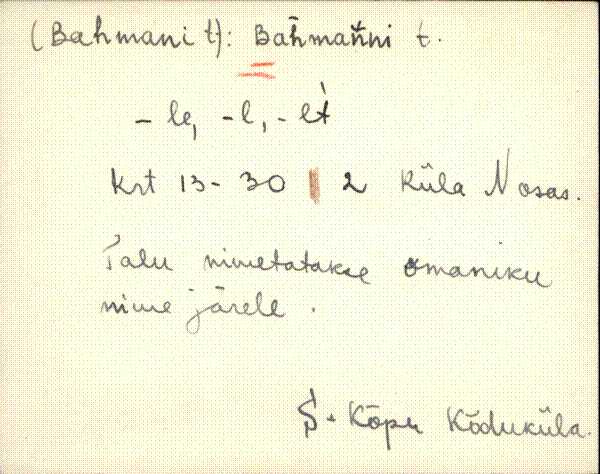 (Bahmani t): Bahmanni t.
- le, -l, -lt
Krt 13-30 | 2 Küla Nosas.
Talu nimetatakse omaniku
nime järele.
S. Kõpu Kõduküla.